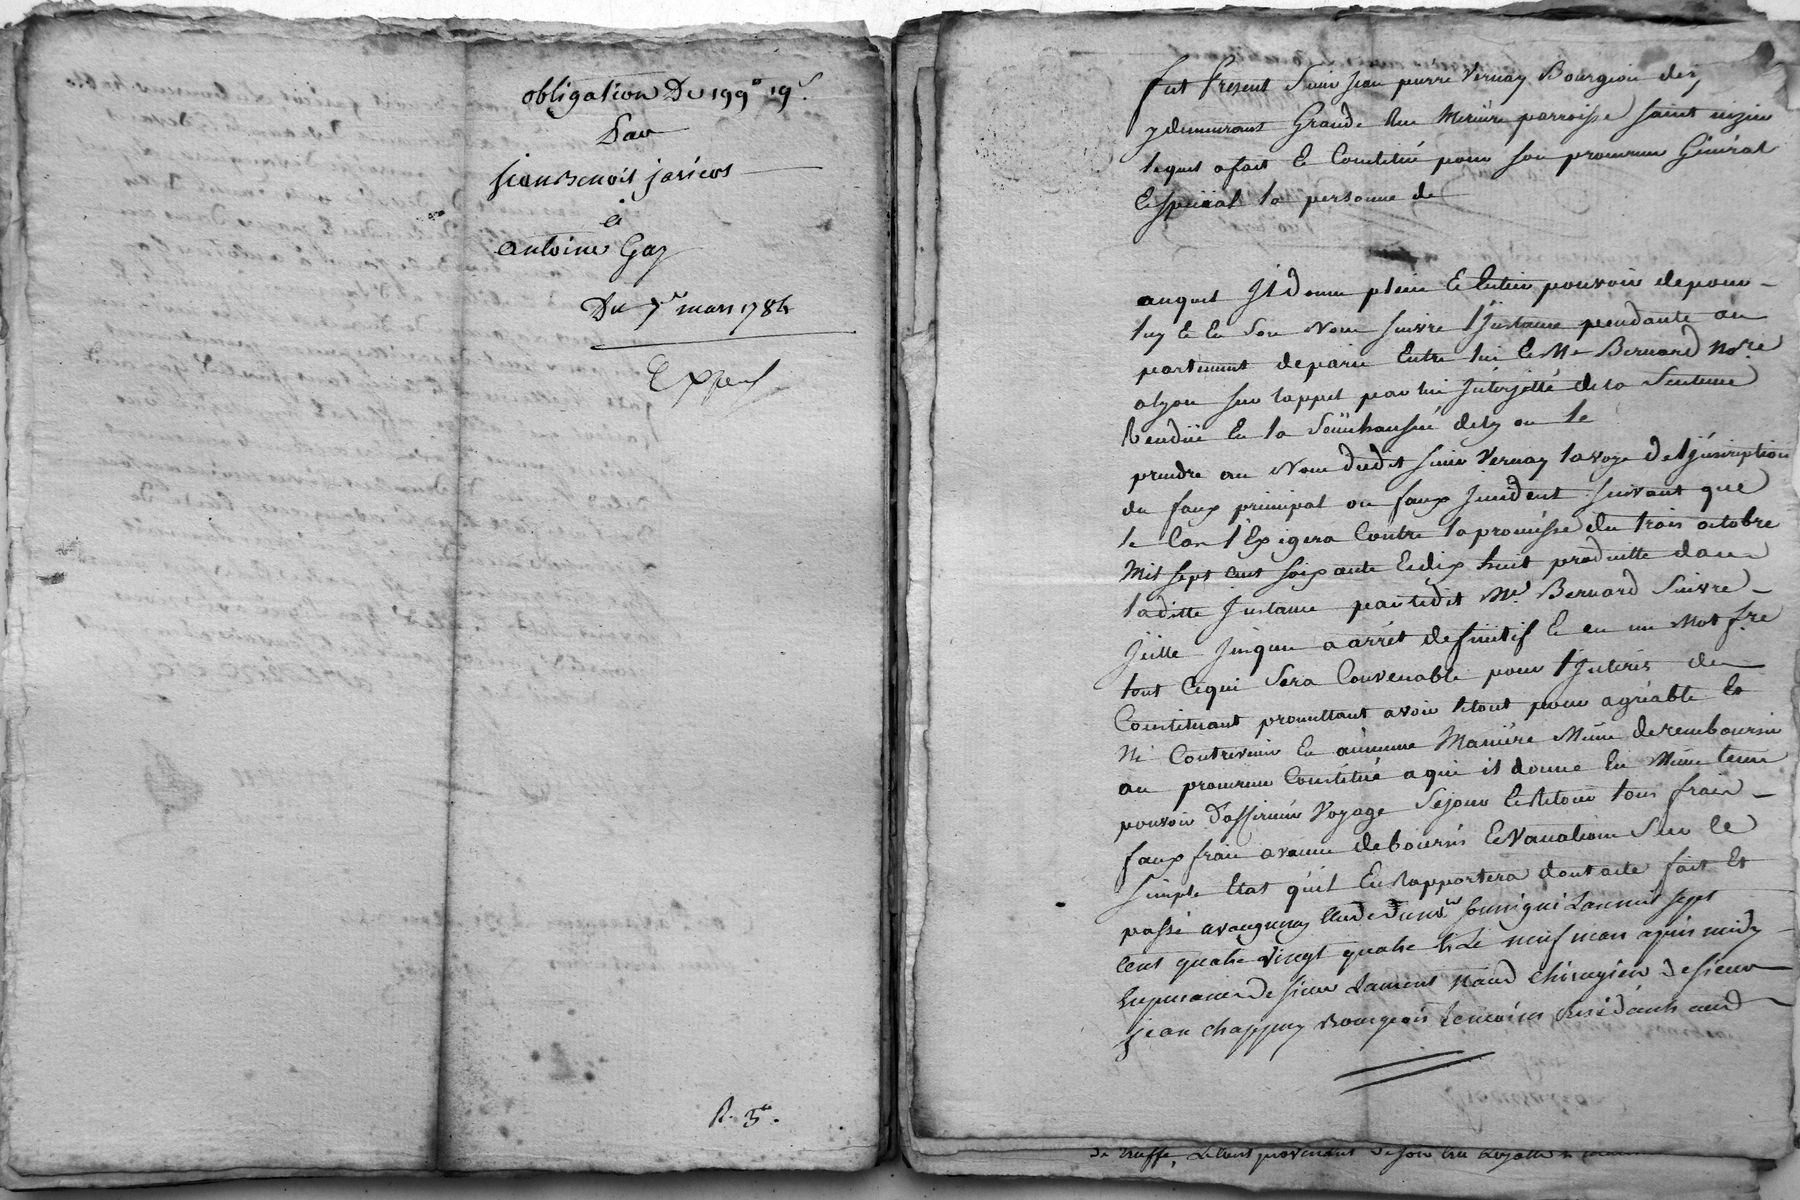 obligation Du 199# 19s.
Par
jean Benoit jaricos
à
antoine Gay
Du 7e mars 1784
R. 5#.
fut Present Sieur jean pierre Vernay Bourgeois de
y demeurant Grande Rue Merciere parroisse saint nizier
lequel a fait & Constitué pour son procureur Général
& special la personne de
auquel Il donne plein & Entier pouvoir de pour
luy & En son Nom suivre l'Instance pendante au
parlement de paris Entre lui & Me Bernard No.re
a lyon sur l'appel par lui Interjetté de la Sentence
Renduë En la Sénéchaussée de ly on le
prendre au Nom dudit sieur Vernay la voye de l'Inscription
de faux principal ou faux Incident suivant que
le Cas l'Exigera Contre la promesse du trois octobre
Mil sept cent soixante Et dix huit produitte dans
laditte Instance par ledit Me. Bernard Suivre
Icelle jusques a arrêt definitif & en un Mot f.re
tout Ce qui Sera Convenable pour l'Interis du
Constituant promettant avoir le tout pour agréable Et
Ni Contrevenir En aucune Maniére Même de rembourser
au procureur Constitué a qui il donne En Même tems
pouvoir d'affirmer Voyage Sejour & Retour tous frais
faux frais avance deboursés & Vacations Sur le
Simple Etat qu'il En Rapportera dont acte fait Et
passé a vaugneray Etude du No.re soussigné L'an mil sept
Cent quatre vingt quatre & Le neuf mars après midy
En presence de sieur Laurent Nand chirurgien & sieur
jean chappuy Bourgeois temoins Residants aud